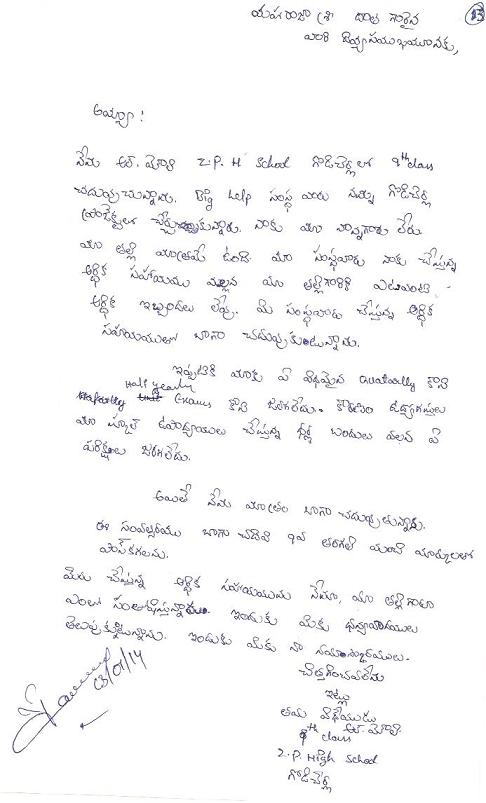 83
మహారాజశ్రీ దాత గారైన
వారి దివ్యసముఖమునకు,
అయ్యా!
నేను ఆర్. మౌళి Z.P. H School గొడిచెర్ల లో 9th class
చదువుచున్నాను. Big Help సంస్థ వారు నన్ను గొడిచెర్ల
ప్రాజెక్టులో చేర్చుకున్నారు. నాకు మా నాన్నగారు లేరు
మా తల్లి మాత్రమే ఉంది. మా సంస్థవారు నాకు చేస్తున్న
ఆర్థిక సహాయము వల్లన మా తల్లిగారికి ఎటువంటి
ఆర్థిక ఇబ్బందులు లేవు. మీ సంస్థవారు చేస్తున్న ఆర్థిక
సహాయములో బాగా చదువుకుంటున్నాను.
ఇప్పటికి మాకు ఏ విధమైన Quarterlly కాని
Half yearly Exams కాని జరగలేదు. కారణం ఉద్యోగస్తులు
మా స్కూల్ ఉపాధ్యాయులు చేస్తున్న దీక్ష బందులు వలన ఏ
పరీక్షలు జరగలేదు.
అయితే నేను మాత్రం బాగా చదువుతున్నాను.
ఈ సంవత్సరము బాగా చదివి 9వ తరగతి మంచి మార్కులతో
పాస్ కాగలను.
మీరు చేస్తున్న ఆర్థిక సహాయమును నేను, మా తల్లిగారు
ఎంతో సంతోషిస్తున్నాము. ఇందుకు మీకు ధన్యవాదములు
తెలుపుకుంటున్నాను. ఇందుకు మీకు నా నమస్కారములు.
చిత్తగించవలెను
ఇట్లు
తమ విధేయుడు
ఆర్. మౌళి
9th class
Z.P. High School
గొడిచెర్ల
03/01/14